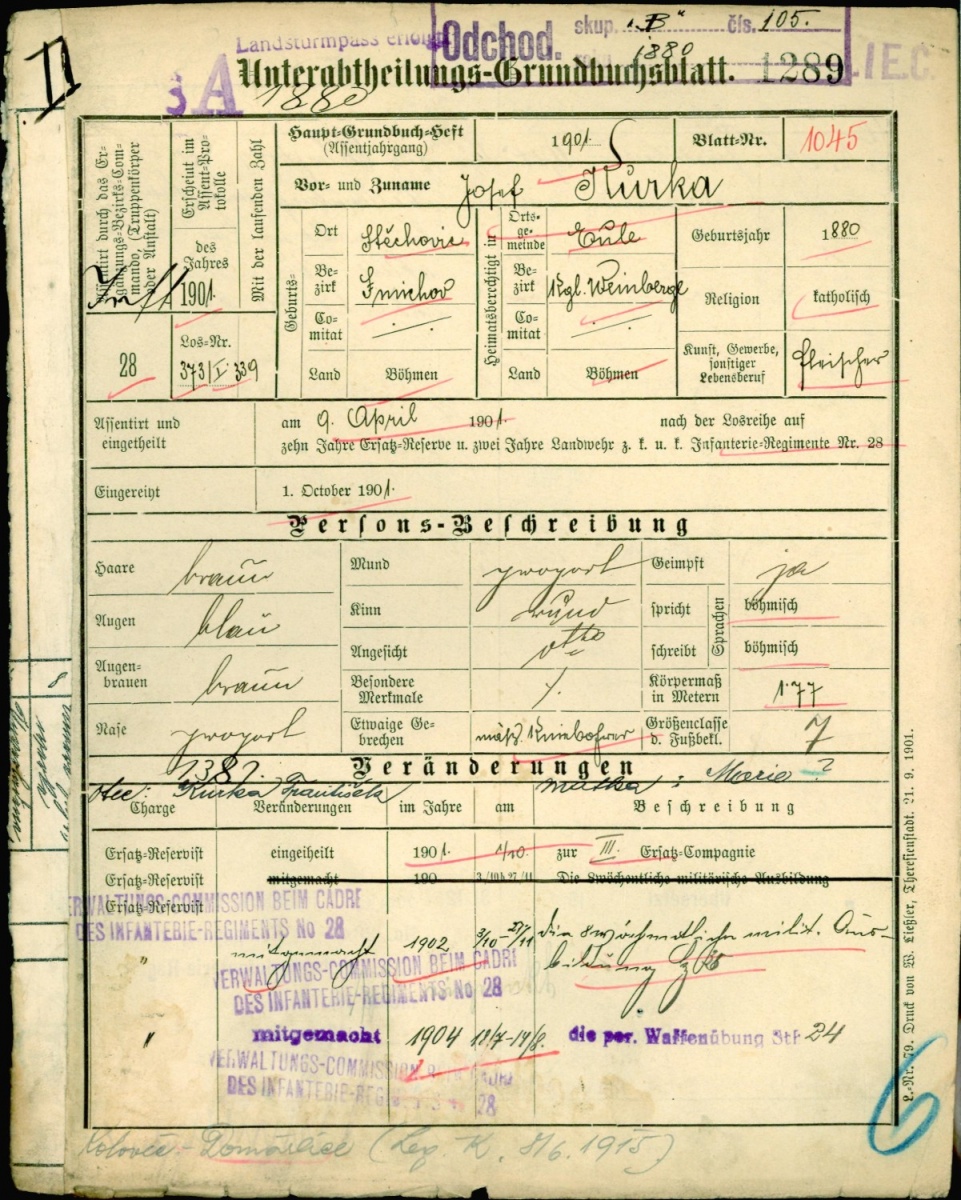 II
Landsturmpass erfolgt
Odchod. skup. „B“ čís. 105.
1880
3A
Unterabtheilungs-Grundbuchsblatt. 1289
1880
Haupt-Grundbuch-Heft
(Assentjahrgang)
1901.
Blatt-Nr.
1045
Erscheint im Assent-Protokolle
des Jahres
1901.
Mit der laufenden Zahl
28
Los-Nr.
373/I. 339
Vor- und Zuname Josef Kurka
Geburts-
Ort Stěchovic
Bezirk Smichov
Comitat
Land Böhmen
Heimatsberechtigt in
Ortsgemeinde Eule
Bezirk Kgl. Weinberge
Comitat
Land Böhmen
Geburtsjahr 1880
Religion katholisch
Kunst, Gewerbe, sonstiger Lebensberuf
Fleischer
Assentirt und eingetheilt
am 9. April 1901. nach der Losreihe auf
zehn Jahre Ersatz-Reserve u. zwei Jahre Landwehr z. k. u. k. Infanterie-Regimente Nr. 28
Eingereiht 1. October 1901.
Persons-Beschreibung
Haare braun
Augen blau
Augenbrauen braun
Nase proport
Mund proport
Kinn rund
Angesicht dtto
Besondere Merkmale /.
Etwaige Gebrechen mäß. Kniebohrer
Geimpft ja
Sprachen
spricht böhmisch
schreibt böhmisch
Körpermaß in Metern 1·77
Größenclasse d. Fußbekl. 7
1387. Veränderungen
Otec: Kurka František matka: Marie ?
Charge Veränderungen im Jahre am Beschreibung
Ersatz-Reservist eingetheilt 1901. 1/10. zur III. Ersatz-Compagnie
Ersatz-Reservist mitgemacht 190 3/10 b. 27/11 Die 8wöchentliche militärische Ausbildung
Ersatz-Reservist
VERWALTUNGS-COMMISSION BEIM CADRE
DES INFANTERIE-REGIMENTS No 28
" mitgemacht 1902 3/10-27/11 die 8wöchentliche milit. Ausbildung
VERWALTUNGS-COMMISSION BEIM CADRE
DES INFANTERIE-REGIMENTS No 28
" mitgemacht 1904 18/7-14/8. die per. Waffenübung 24
VERWALTUNGS-COMMISSION BEIM CADRE
DES INFANTERIE-REGIMENTS No 28
Kolovec - Domažlice (Lep. K. 8/6. 1915)
6
L.-Nr. 79. Druck von W. Ließler, Theresienstadt. 21. 9. 1901.